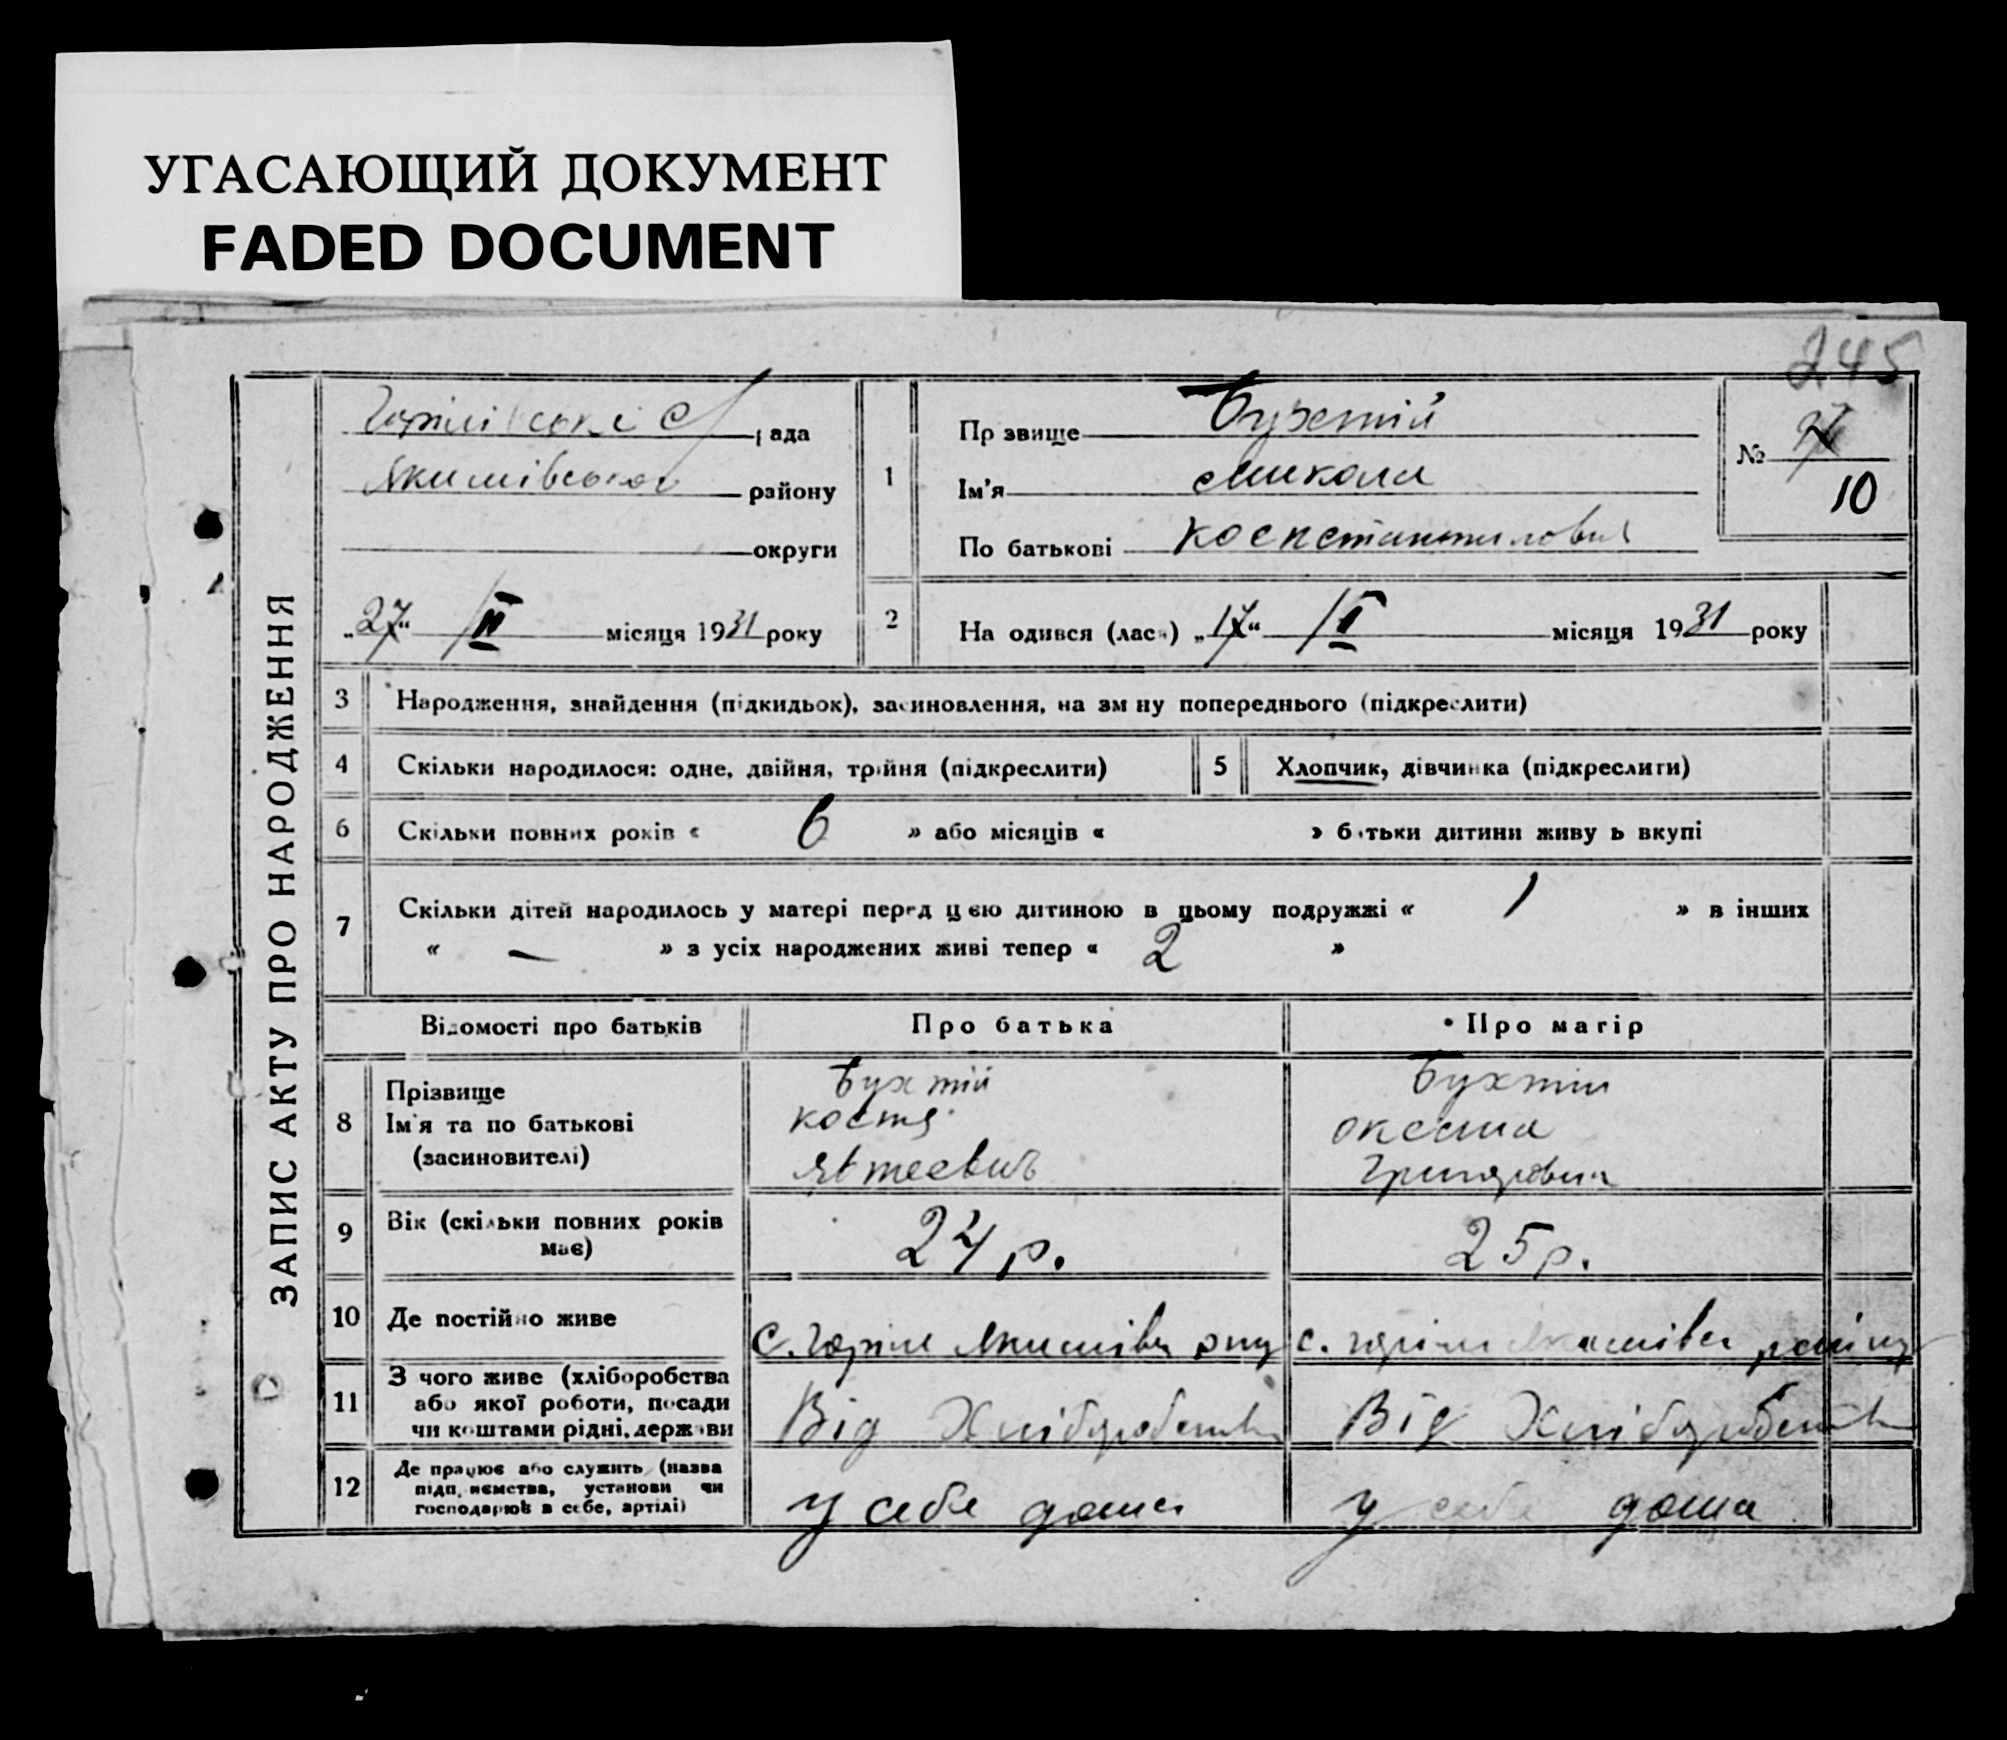 УГАСАЮЩИЙ ДОКУМЕНТ
FADED DOCUMENT
245
ЗАПИС АКТУ ПРО НАРОДЖЕННЯ
рада
Якимівського району
округи
„27“ /II місяця 1931 року
1
Прізвище Бухтій
Ім'я Микола
По батькові Коснстантинович
№ 27
10
2
Народився (лася) „17“ /II місяця 1931 року
3 Народження, знайдення (підкидьок), засиновлення, на зміну попереднього (підкреслити)
4 Скільки народилося: одне, двійня, трійня (підкреслити)
5 Хлопчик, дівчинка (підкреслити)
6 Скільки повних років « 6 » або місяців « » батьки дитини живуть вкупі
7 Скільки дітей народилось у матері перед цією дитиною в цьому подружжі « 1 » в інших
« — » з усіх народжених живі тепер « 2 »
Відомості про батьків Про батька Про матір
8 Прізвище
Ім'я та по батькові
(засиновителі)
Бухтій
Костя
Явтеевич
Бухтій
Оксана
Григоровна
9 Вік (скільки повних років має)
24 р.
25 р.
10 Де постійно живе
с. Якимівсь р-ну
с. Якимівсь району
11 З чого живе (хліборобства
або якої роботи, посади
чи коштами рідні, держави
Від Хліборобства
Від Хліборобства
12 Де працює або служить (назва
підприємства, установи чи
господарює в себе, артілі)
у себе дома
у себе дома